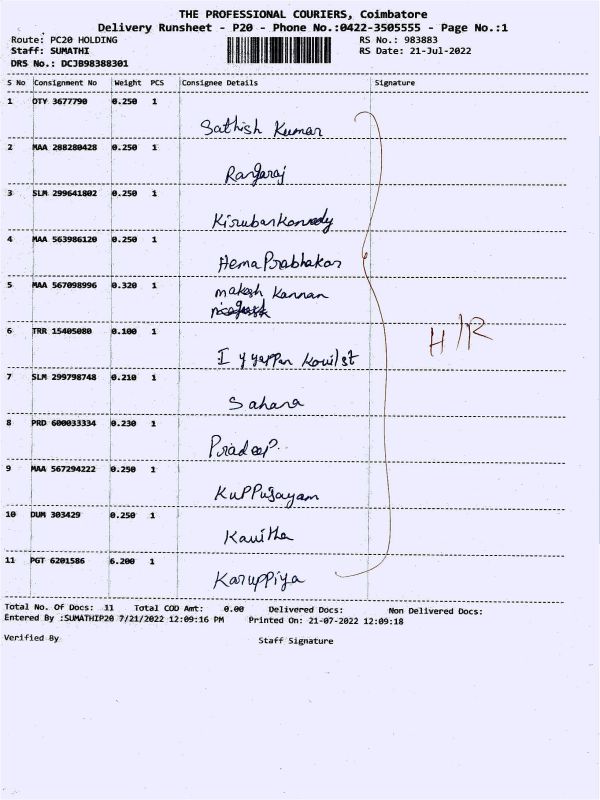 THE PROFESSIONAL COURIERS, Coimbatore
Delivery Runsheet - P20 - Phone No.:0422-3505555 - Page No.:1
Route: PC20 HOLDING RS No.: 983883
Staff: SUMATHI RS Date: 21-Jul-2022
DRS No.: DCJB98388301
S No Consignment No Weight PCS Consignee Details Signature
1 OTY 3677790 0.250 1
Sathish Kumar
2 MAA 288280428 0.250 1
Rangaraj
3 SLM 299641802 0.250 1
Kirubankennady
4 MAA 563986120 0.250 1
Hema Prabhakar
5 MAA 567098996 0.320 1
makesh Kannan
6 TRR 15405080 0.100 1
H/R
Iyyappan Kovil st
7 SLM 299798748 0.210 1
Sahana
8 PRD 600033334 0.230 1
Pradeep
9 MAA 567294222 0.250 1
Kuppusayam
10 DUM 303429 0.250 1
Kavitha
11 PGT 6201586 6.200 1
Karuppiya
Total No. Of Docs: 11 Total COD Amt: 0.00 Delivered Docs: Non Delivered Docs:
Entered By :SUMATHIP20 7/21/2022 12:09:16 PM Printed On: 21-07-2022 12:09:18
Verified By Staff Signature